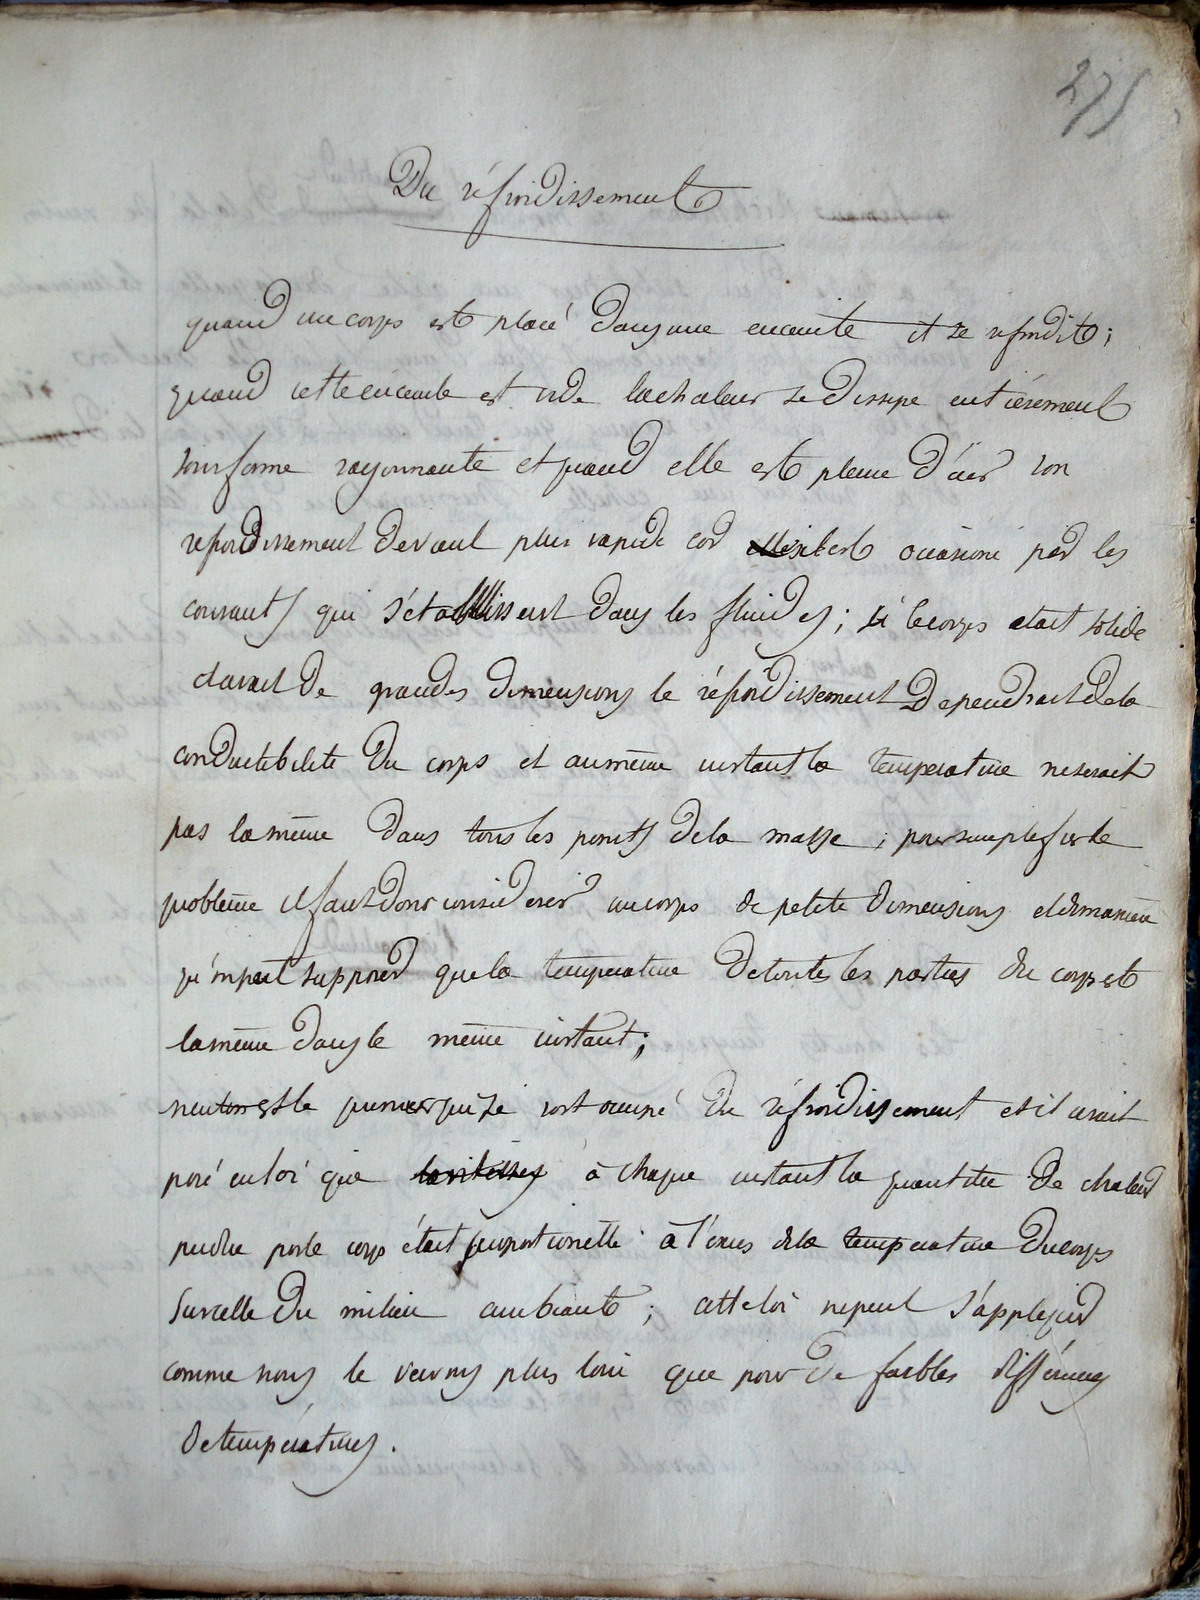 275
Du réfroidissement
quand un corps est placé dans une enceinte il se refroidit ;
quand cette enceinte est vide la chaleur se dissipe entièrement
sous forme rayonnante et quand elle est pleine d'air son
refroidissement devient plus rapide car il est occasioné par les
courants qui s'établissent dans les fluides ; si le corps etait solide
et avait de grandes dimensions le réfroidissement dependrait de la
conductibilité du corps et au même instant la temperature ne serait
pas la même dans tous les points de la masse ; pour simplefier le
problême il faut donc considerer un corps de petite dimensions et de maniere
qu'on peut supposer que la temperature de toutes les parties du corps est
la même dans le même instant ;
neuton est le premier qui se soit occupé du réfroidissement et il avait
posé en loi que la vitesse à chaque instant la quantitée de chaleur
perdue par le corps était proportionelle à l'exces de la temperature du corps
sur celle du milieu ambiante ; cette loi ne peut s'appliquer
comme nous le verrons plus loin que pour de faibles différences
de températures.